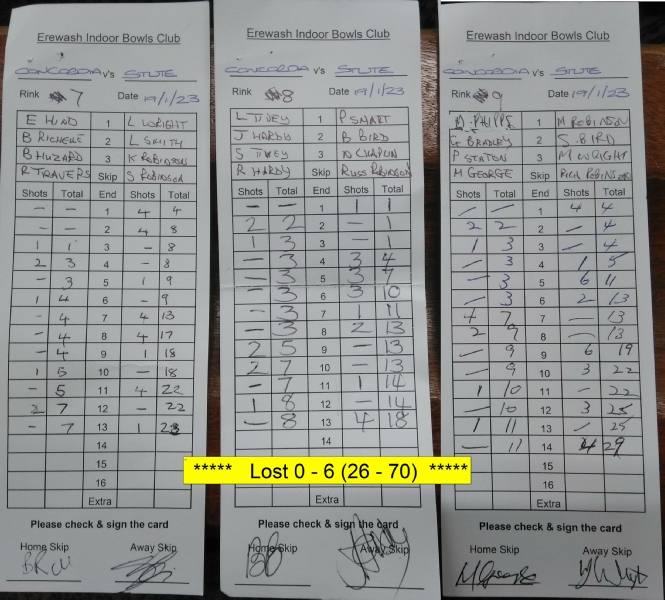 Erewash Indoor Bowls Club
CONCORDIA v's STUTE
Rink 7 Date 19/1/23
E HIND 1 L WRIGHT
B RICHELLE 2 L SMITH
B HUZARD 3 K ROBINSON
R TRAVERS Skip S ROBINSON
Shots Total End Shots Total
– – 1 4 4
– – 2 4 8
1 1 3 – 8
2 3 4 – 8
– 3 5 1 9
1 4 6 – 9
– 4 7 4 13
– 4 8 4 17
– 4 9 1 18
1 5 10 – 18
– 5 11 4 22
2 7 12 – 22
– 7 13 1 23
14
15
16
Extra
Please check & sign the card
Home Skip Away Skip
Erewash Indoor Bowls Club
CONCORDIA v's STUTE
Rink 8 Date 19/1/23
L TIVEY 1 P SMART
J HARDY 2 B BIRD
S TIVEY 3 D CHAPLIN
R HARDY Skip RUSS ROBINSON
Shots Total End Shots Total
– – 1 1 1
2 2 2 – 1
1 3 3 – 1
– 3 4 3 4
– 3 5 3 7
– 3 6 3 10
– 3 7 1 11
– 3 8 2 13
2 5 9 – 13
2 7 10 – 13
– 7 11 1 14
1 8 12 – 14
– 8 13 4 18
14
Extra
Please check & sign the card
Home Skip Away Skip
Erewash Indoor Bowls Club
CONCORDIA v's STUTE
Rink 9 Date 19/1/23
D. PHIPPS 1 M ROBINSON
G BRADLEY 2 S. BIRD
P STATON 3 M WRIGHT
M GEORGE Skip RICH ROBINSON
Shots Total End Shots Total
– – 1 4 4
2 2 2 – 4
1 3 3 – 4
– 3 4 1 5
– 3 5 6 11
– 3 6 2 13
4 7 7 – 13
2 9 8 – 13
– 9 9 6 19
– 9 10 3 22
1 10 11 – 22
– 10 12 3 25
1 11 13 – 25
– 11 14 4 29
15
16
Extra
Please check & sign the card
Home Skip Away Skip
M George
***** Lost 0 - 6 (26 - 70) *****